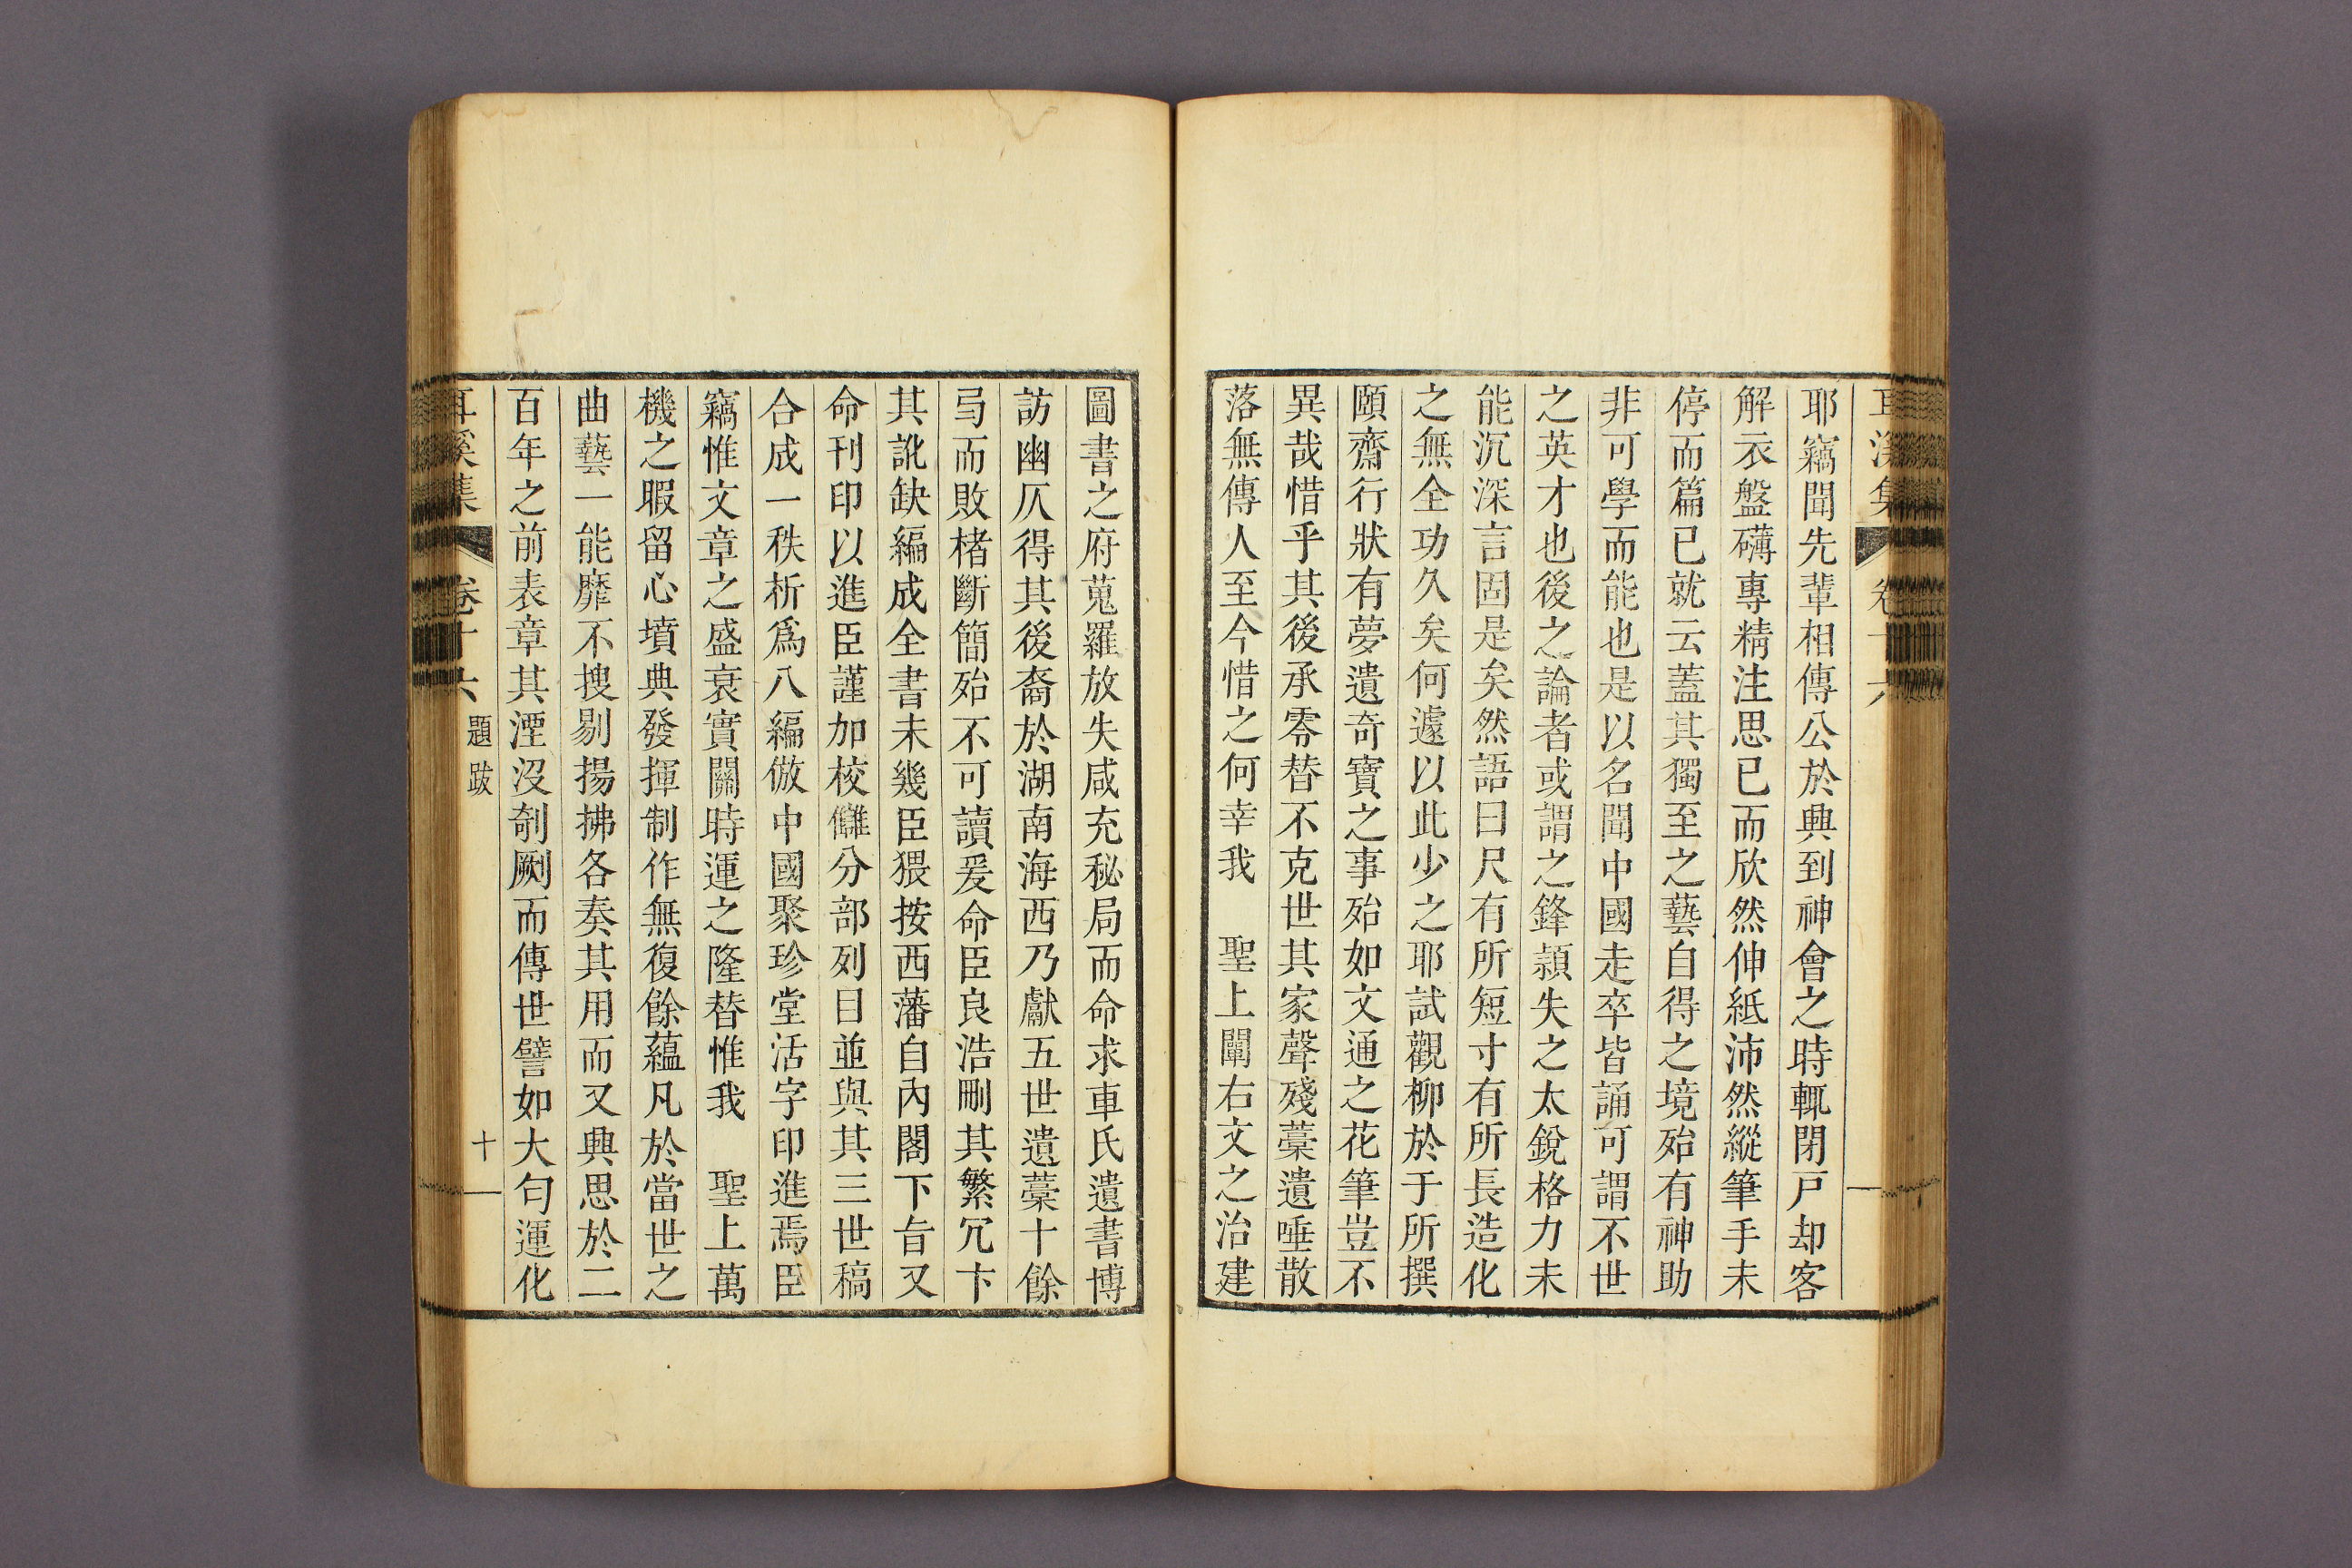 耳溪集 卷十六
耶竊聞先輩相傳公於興到神會之時輒閉戶却客
解衣盤礴專精注思已而欣然伸紙沛然縱筆手未
停而篇已就云蓋其獨至之藝自得之境殆有神助
非可學而能也是以名聞中國走卒皆誦可謂不世
之英才也後之論者或謂之鋒潁失之太銳格力未
能沉深言固是矣然語曰尺有所短寸有所長造化
之無全功久矣何遽以此少之耶試觀柳於于所撰
頤齋行狀有夢遺奇寶之事殆如文通之花筆豈不
異哉惜乎其後承零替不克世其家聲殘藁遺唾散
落無傳人至今惜之何幸我 聖上闡右文之治建
圖書之府蒐羅放失咸充秘局而命求車氏遺書博
訪幽仄得其後裔於湖南海西乃獻五世遺藁十餘
弓而敗楮斷簡殆不可讀爰命臣良浩刪其繁冗卞
其訛缺編成全書未幾臣猥按西藩自內閣下旨又
命刊印以進臣謹加校讎分部列目並與其三世稿
合成一秩析爲八編倣中國聚珍堂活字印進焉臣
竊惟文章之盛衰實關時運之隆替惟我 聖上萬
機之暇留心墳典發揮制作無復餘蘊凡於當世之
曲藝一能靡不搜剔揚拂各奏其用而又興思於二
百年之前表章其湮沒剞劂而傳世譬如大匀運化
耳溪集 卷十六 題跋 十